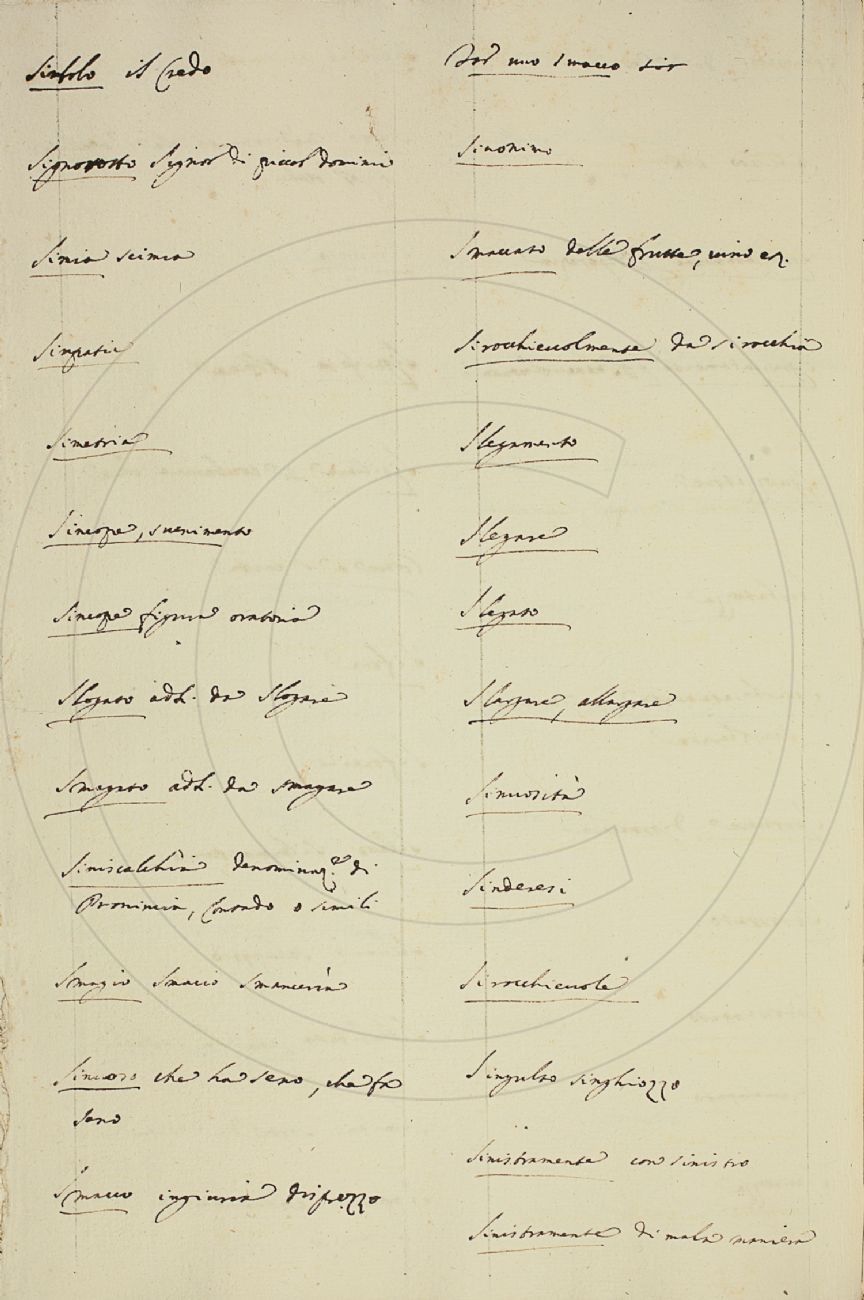 Simbolo il Credo
Signorotto Signor di piccol dominio
Simia scimia
Simpatia
Simetria
Sincope, svenimento
Sincope figura oratoria
Slogato add. da Slogare
Smagato add. da smagare
Siniscalchia denominaz.e di
Provincia, Contado o simili
Smagio Smacio Smanceria
Sinuoso che ha seno, che fa
seno
Smacco ingiuria disprezzo
Far uno Smacco
Sinonimo
Smaccato delle frutte, vino
Sirocchievolmente da Sirocchia
Slegamento
Slegare
Slegato
Slargare, allargare
Sinuosità
Sinderesi
Sirocchievole
Singulto singhiozzo
Sinistramente con sinistro
Sinistramente di mala maniera